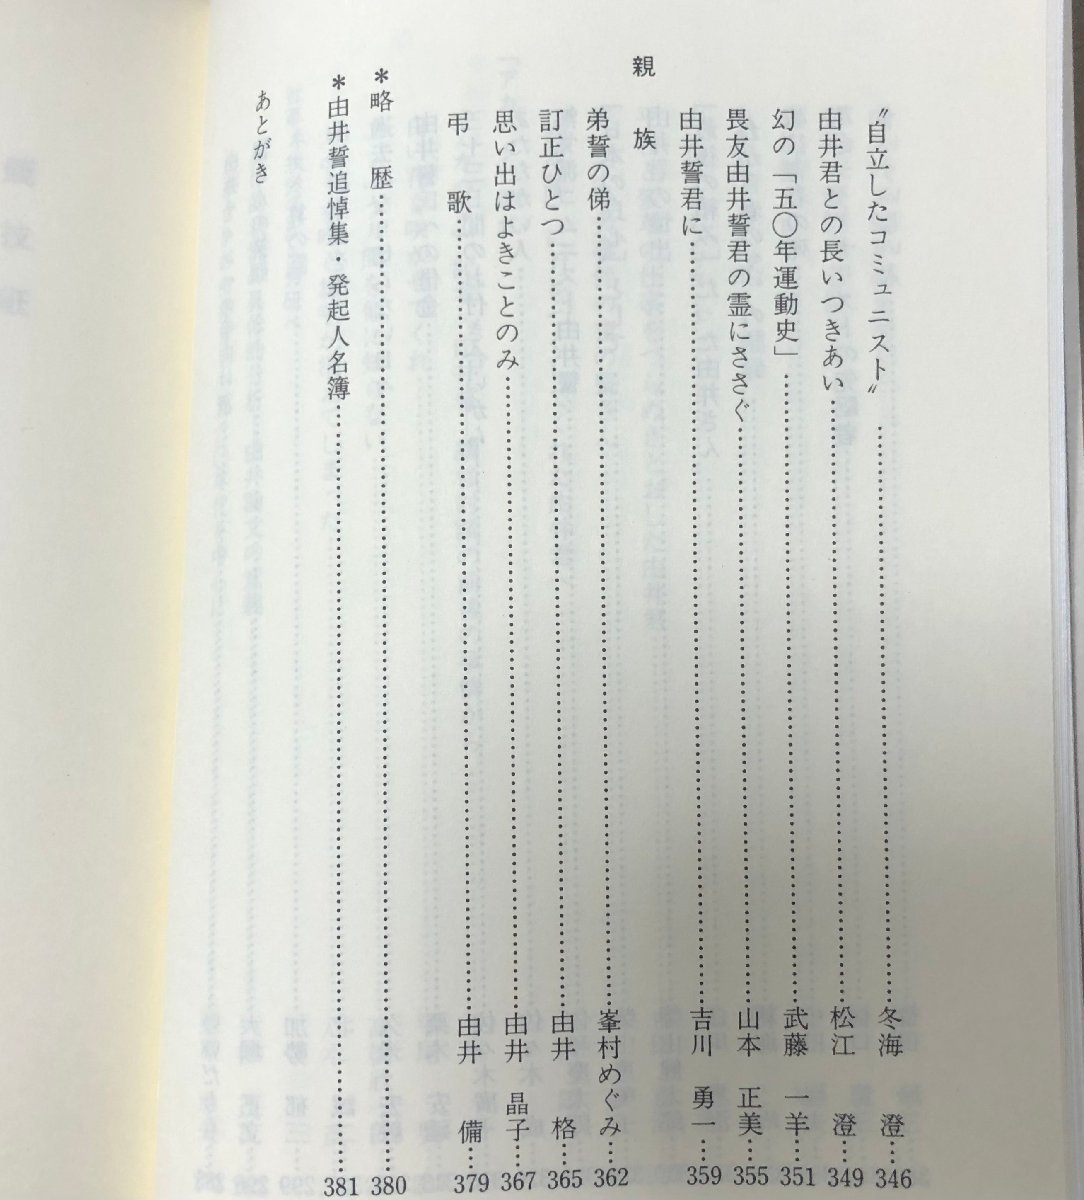 〝自立したコミュニスト〟……冬海 澄…346
由井君との長いつきあい……松江 澄…349
幻の「五〇年運動史」……武藤 一羊…351
畏友由井誓君の霊にささぐ……山本 正美…355
由井誓君に……吉川 勇一…359
親族
弟誓の俤……峯村めぐみ…362
訂正ひとつ……由井 格…365
思い出はよきことのみ……由井 晶子…367
弔歌……由井 備…379
＊略歴……380
＊由井誓追悼集・発起人名簿……381
あとがき